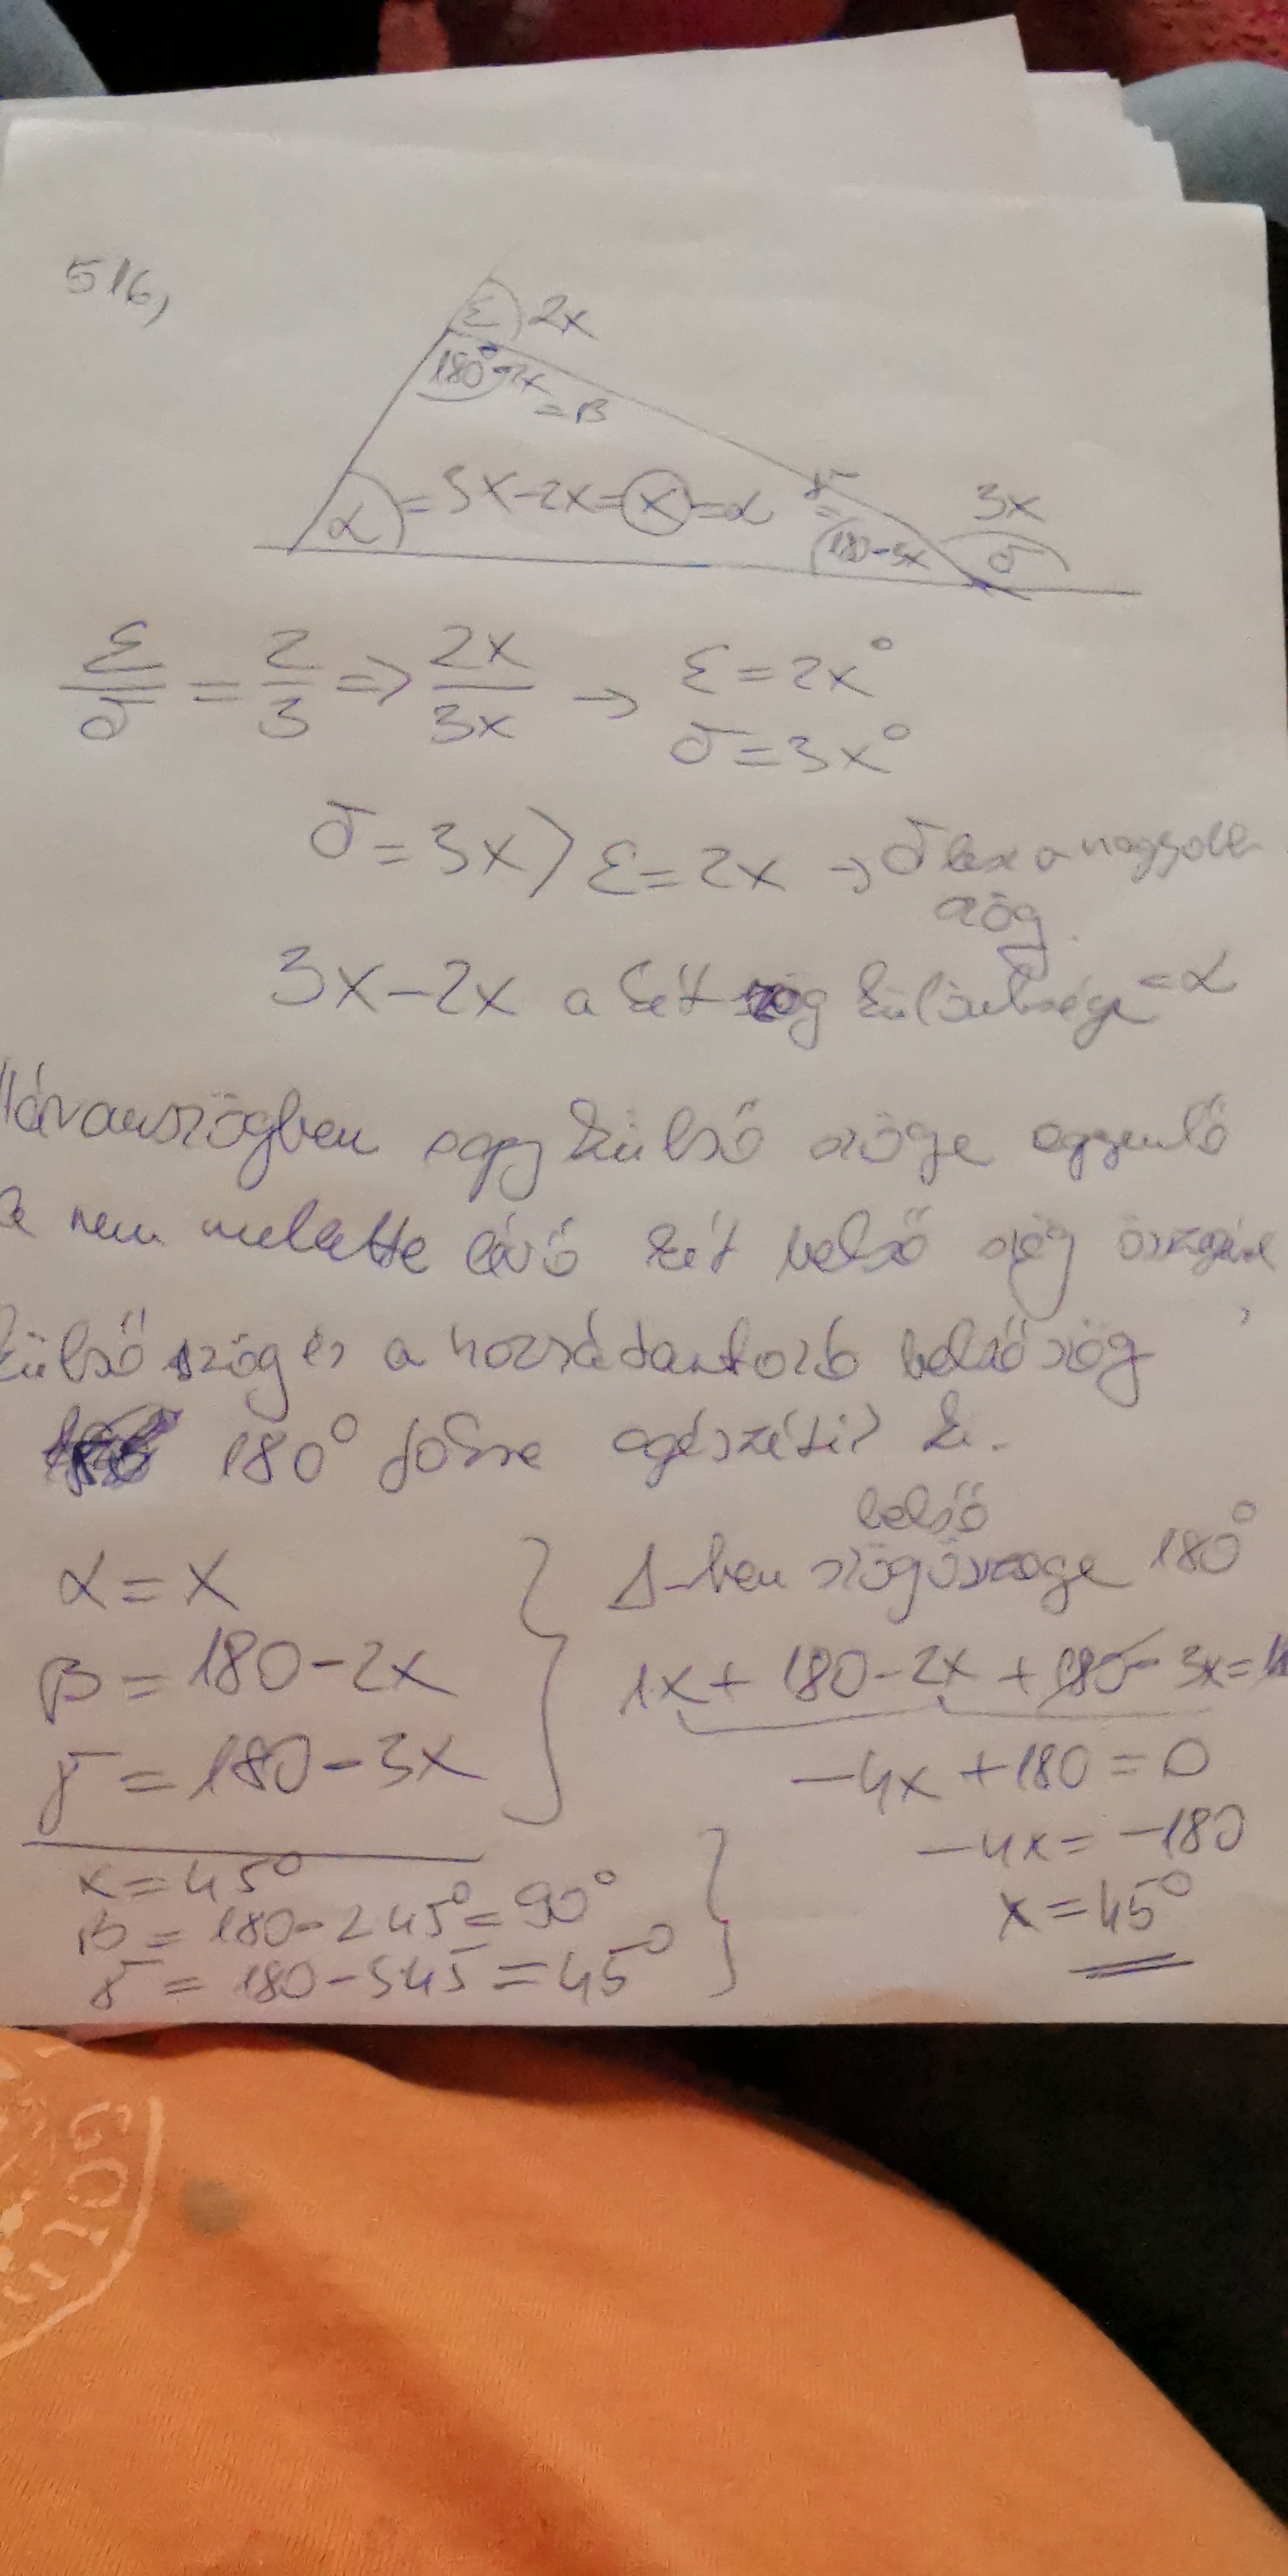 516,
ε 2x
180°-2x
=β
α =3x-2x=x=α
γ
=
180-3x
3x
δ
ε/δ = 2/3 => 2x/3x → ε=2x°
δ=3x°
δ=3x > ε=2x → δ lesz a nagyobb
szög.
3x-2x a két szög különbsége =α
Háromszögben egy külső szöge egyenlő
a nem mellette lévő két belső szög
külső szög és a hozzá tartozó belső szög
180° egészíti ki.
belső
α=x
Δ-ben szögösszege 180°
β=180-2x
1x+180-2x+180-3x=
γ=180-3x
-4x+180=0
-4x=-180
x=45°
x=45°
β=180-2 45°=90°
γ=180-3 45=45°